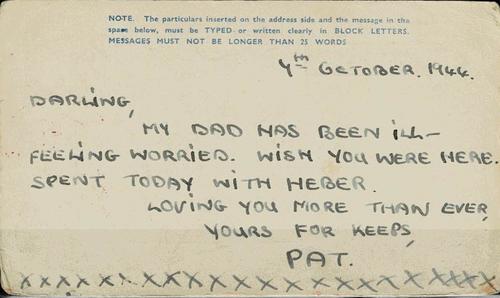 NOTE. The particulars inserted on the address side and the message in the
space below, must be TYPED or written clearly in BLOCK LETTERS.
MESSAGES MUST NOT BE LONGER THAN 25 WORDS
4th OCTOBER. 1944.
DARLING,
MY DAD HAS BEEN ILL-
FEELING WORRIED. WISH YOU WERE HERE.
SPENT TODAY WITH HEBER.
LOVING YOU MORE THAN EVER,
YOURS FOR KEEPS,
PAT.
XXXXXXXXXXXXXXXXXXXXXXX